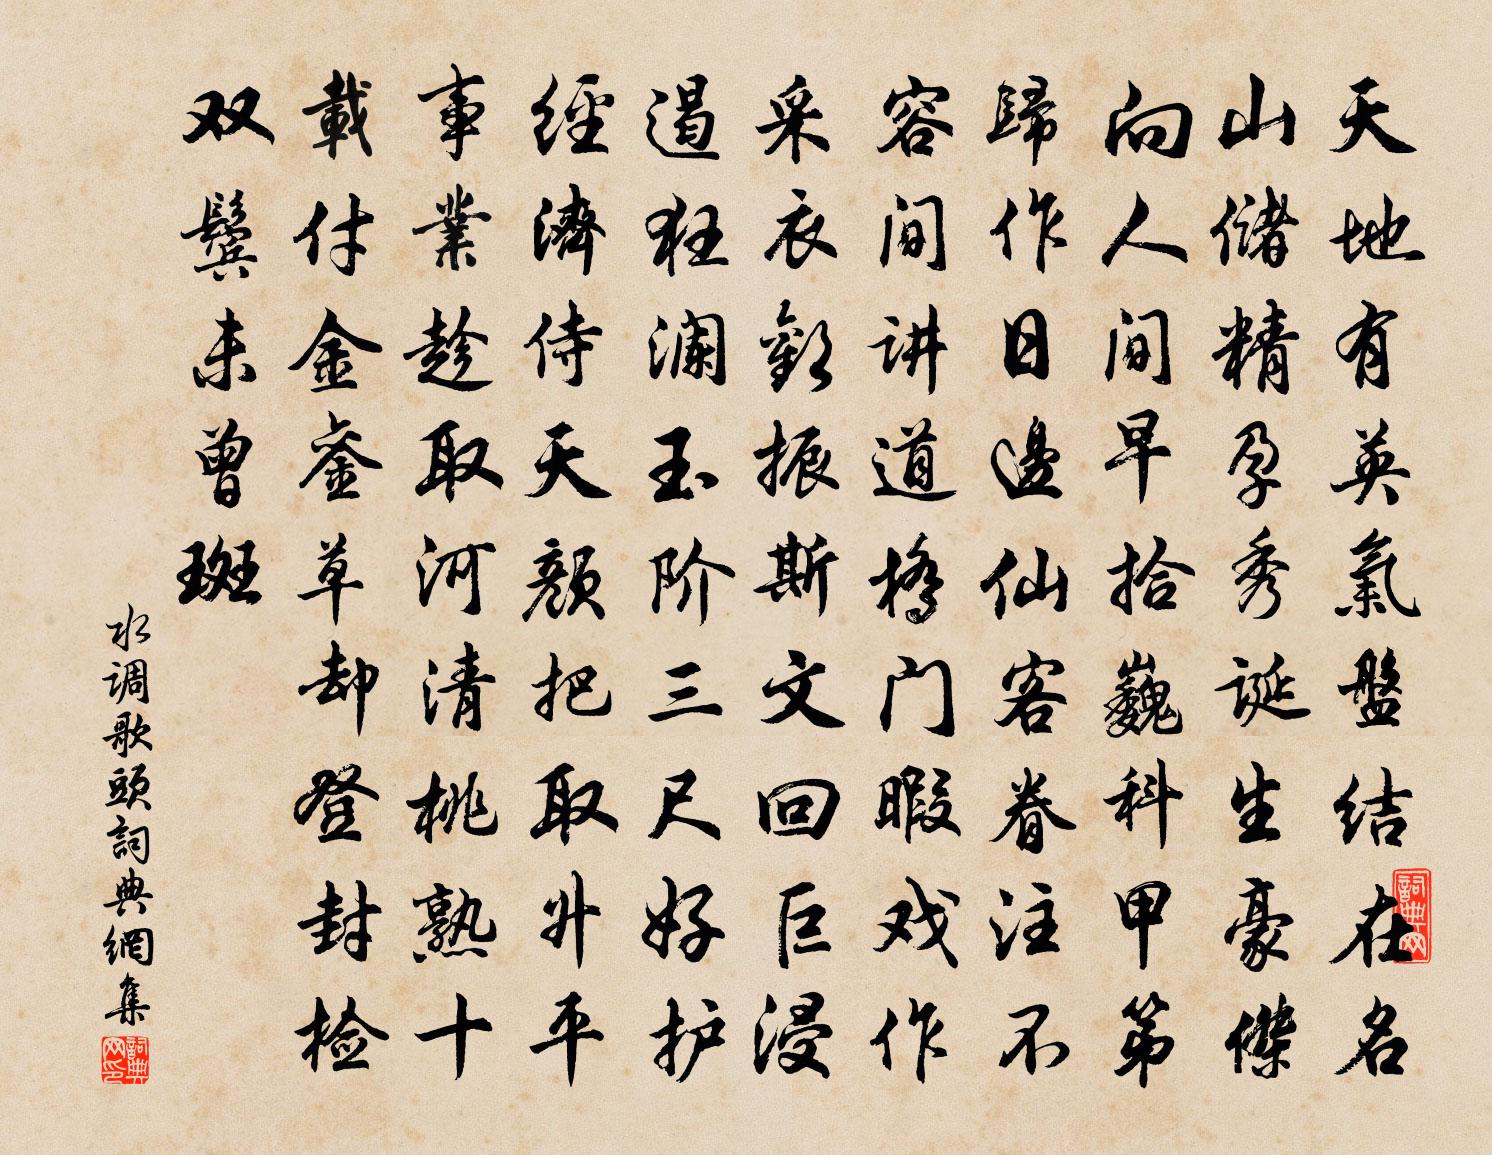 天地有英氣盤結在名
山儲精孕秀誕生豪傑
向人间早拾巍科甲第
歸作日邊仙客眷注不
容间讲道橋门暇戏作
采衣觀振斯文回巨浸
遏狂澜玉阶三尺好护
經濟侍天顏把取升平
事業趁取河清桃熟十
載付金銮草却登封检
双鬓未曾斑
水调歌頭詞典網集
詞典网
詞典网印